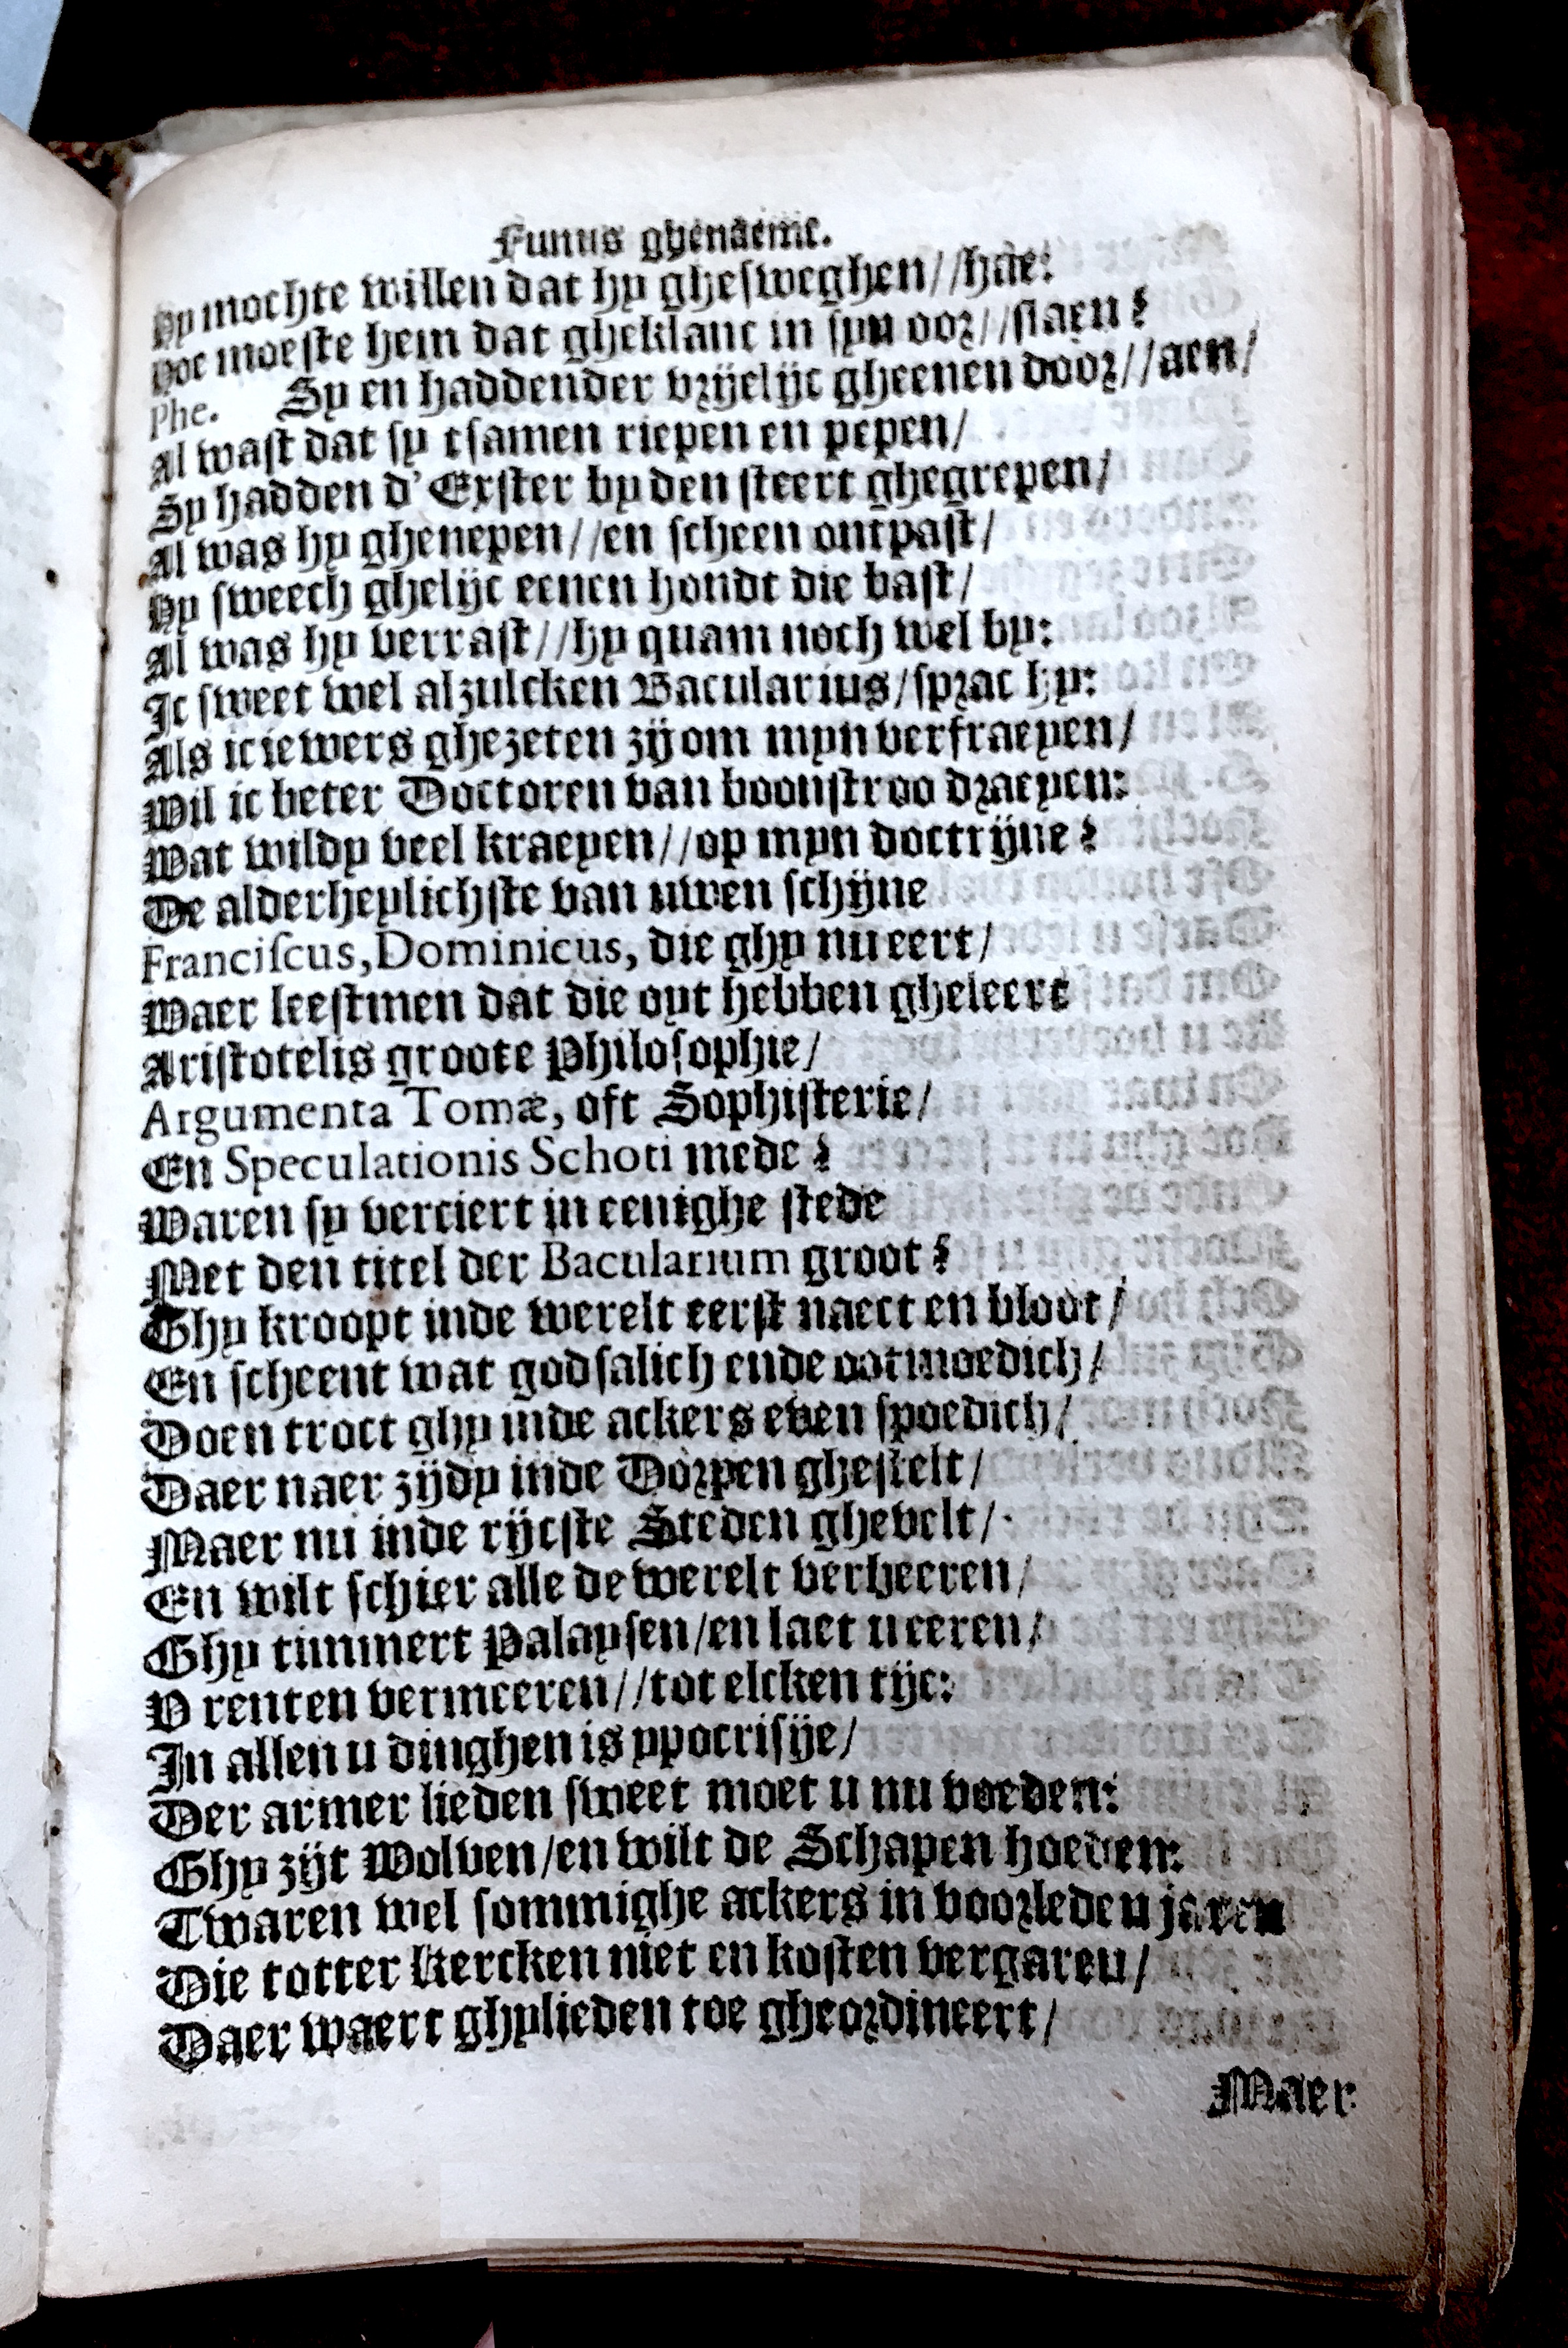 Funus ghenaemt.
Hy mochte willen dat hy ghesweghen//hae:
Hoe moeste hem dat gheklanc in syn oor//slaen?
Phe. Sy en haddender vrijelijc gheenen door//aen/
Al wast dat sy tsamen riepen en pepen/
Sy hadden d'Exster by den steert ghegrepen/
Al was hy ghenepen//en scheen ontpast/
Hy sweech ghelijc eenen hondt die bast/
Al was hy verrast//hy quam noch wel by:
Ic sweet wel alzulcken Bacularius/sprac hy:
Als ic iewers ghezeten zij om myn verfraeyen/
Wil ic beter Doctoren van boonstroo draeyen:
Wat wildy veel kraeyen//op myn doctrijne?
De alderheylichste van uwen schijne
Franciscus, Dominicus, die ghy nu eert/
Waer leestmen dat die oyt hebben gheleert
Aristotelis groote Philosophie/
Argumenta Tomæ, oft Sophisterie/
En Speculationis Schoti mede?
Waren sy verciert in eenighe stede
Met den titel der Bacularium groot?
Ghy kroopt inde werelt eerst naect en bloot/
En scheent wat godsalich ende ootmoedich/
Doen troct ghy inde ackers even spoedich/
Daer naer zijdy inde Dorpen ghestelt/
Maer nu inde rijcste Steden ghevelt/
En wilt schier alle de werelt verheeren/
Ghy timmert Palaysen/en laet u eeren/
V renten vermeeren//tot elcken tijc:
In allen u dinghen is ypocrisije/
Der armer lieden sweet moet u nu voeden:
Ghy zijt Wolven/en wilt de Schapen hoeden:
Twaren wel sommighe ackers in voorleden jaren
Die totter Kercken niet en kosten vergaren/
Daer waert ghylieden toe gheordineert/
Maer